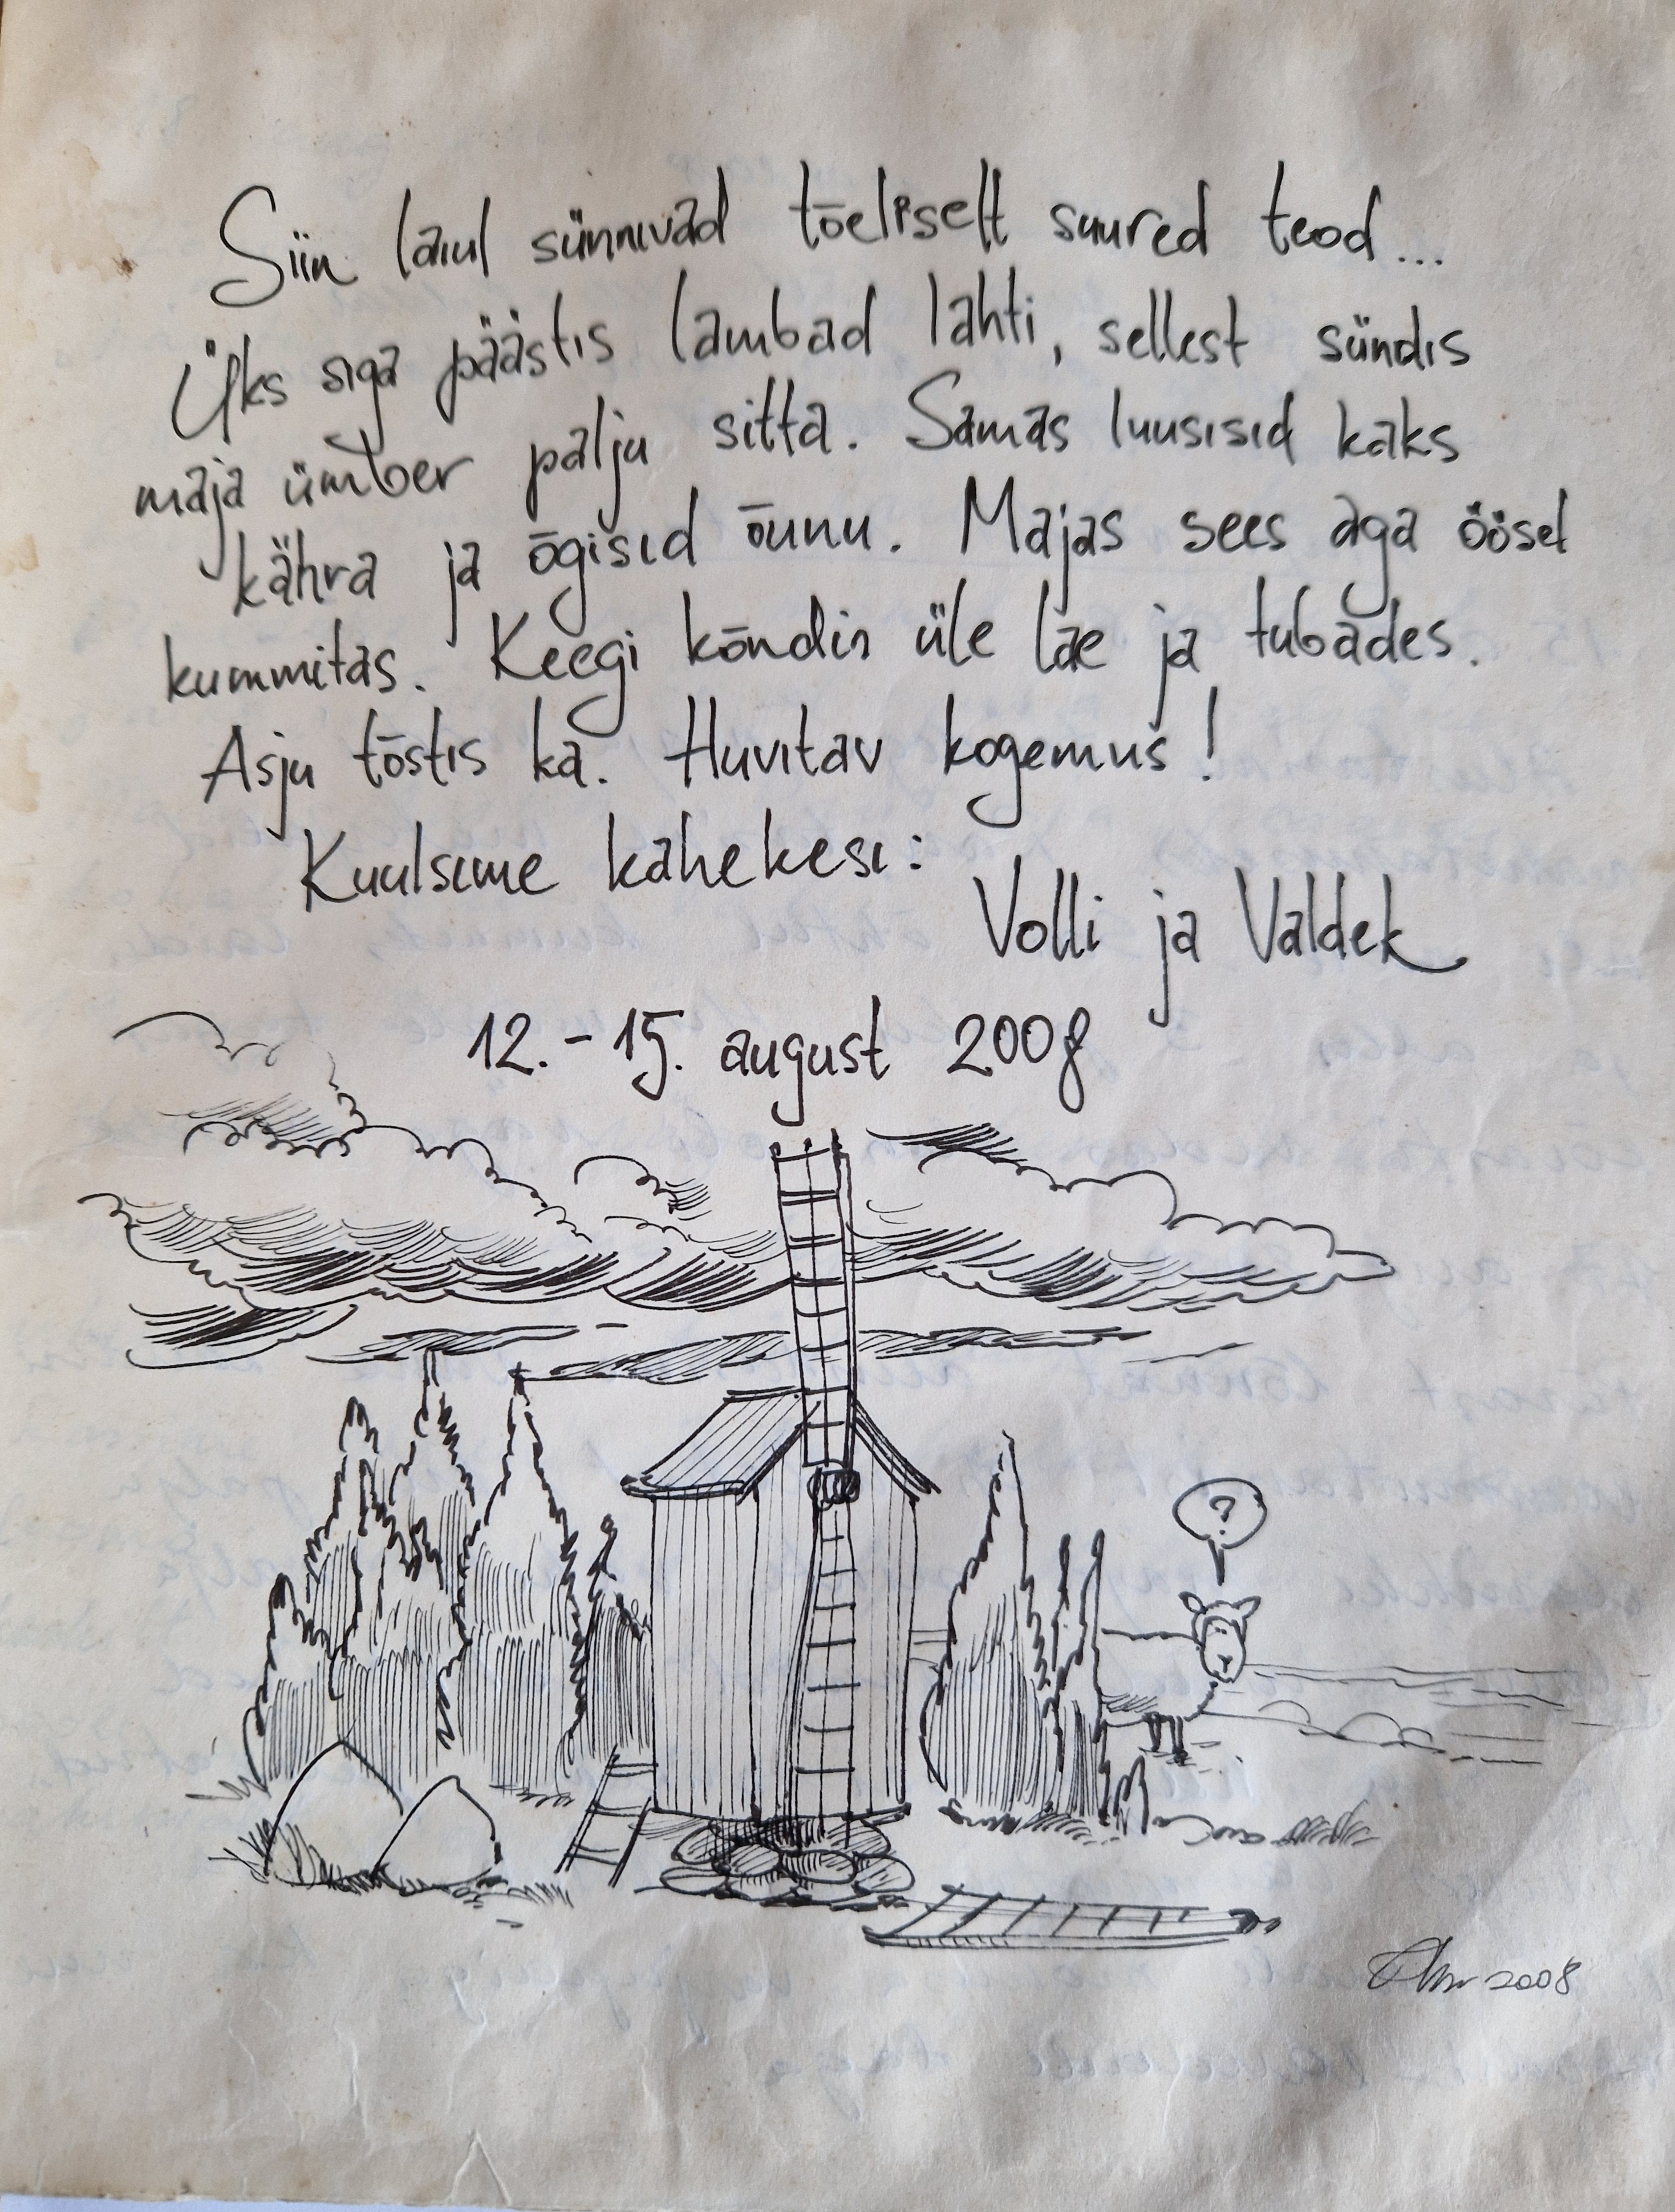 Siin laiul sünnivad tõeliselt suured teod...
Üks siga päästis lambad lahti, sellest sündis
maja ümber palju sitta. Samas luusisid kaks
kähra ja õgisid õunu. Majas sees aga öösel
kummitas. Keegi kõndis üle lae ja tubades.
Asju tõstis ka. Huvitav kogemus!
Kuulsime kahekesi:
Volli ja Valdek
12.-15. august 2008
?
2008